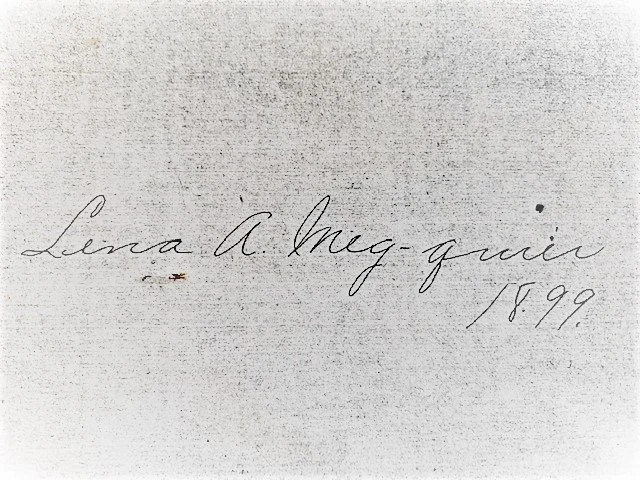 Lena A. Meg-quier
1899.